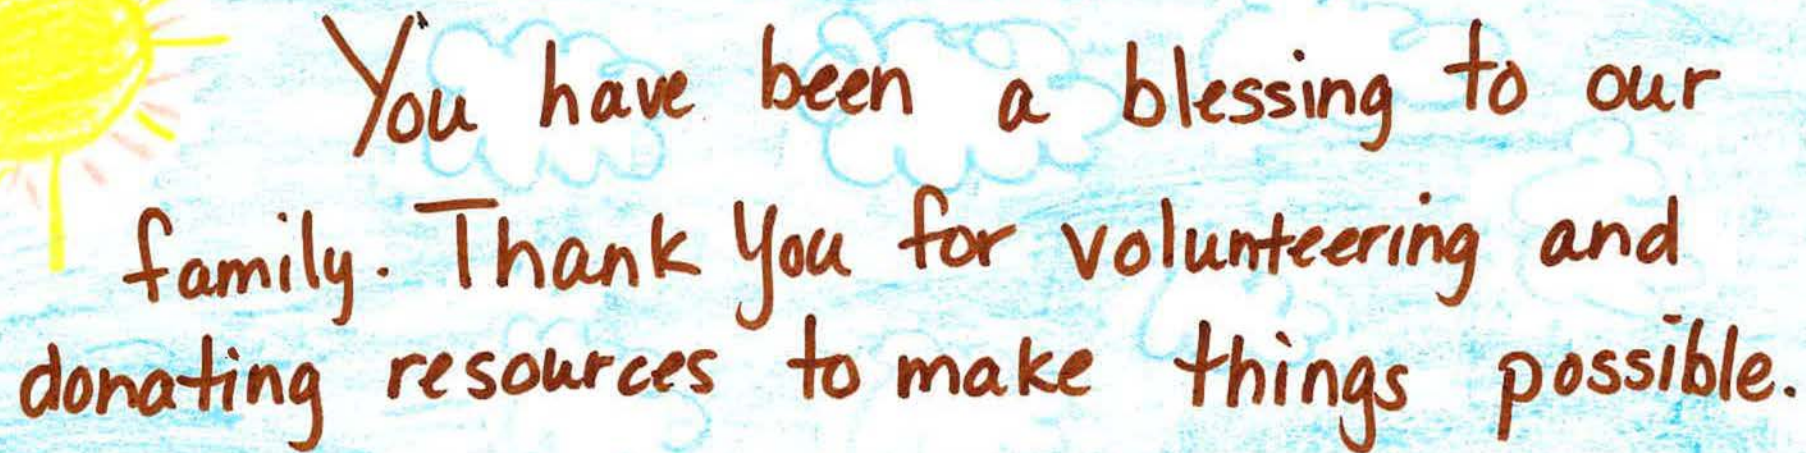 You have been a blessing to our
family. Thank you for volunteering and
donating resources to make things possible.